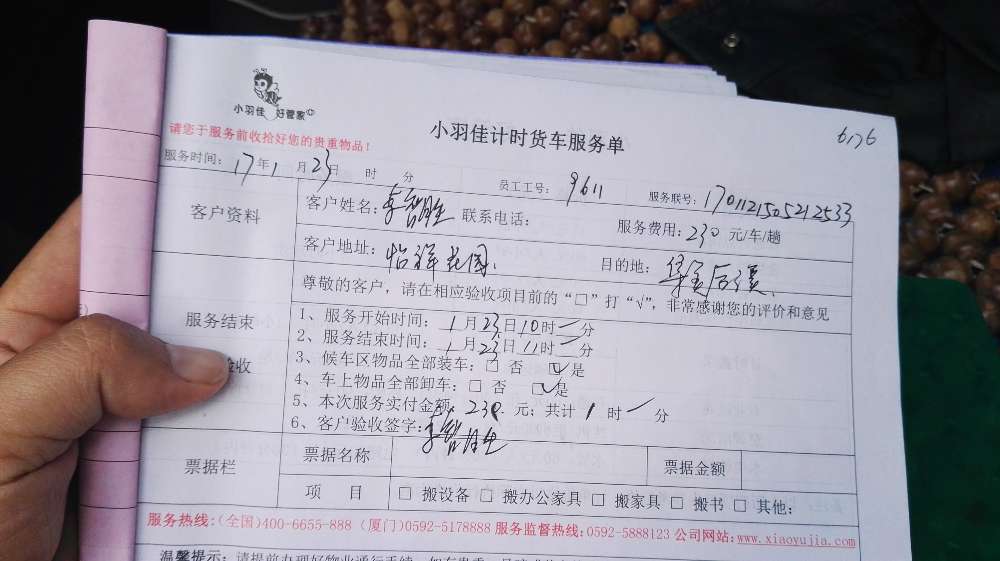 小羽佳 好管家
小羽佳计时货车服务单
6176
请您于服务前收拾好您的贵重物品！
服务时间：17年1月23日 时 分 员工工号：9611 服务联号：1701121505212533
客户资料
客户姓名：李智胜 联系电话： 服务费用：230 元/车/趟
客户地址：怡祥花园 目的地：
服务结束
验收
尊敬的客户，请在相应验收项目前的“□”打“√”，非常感谢您的评价和意见
1、服务开始时间：1月23日10时一分
2、服务结束时间：1月23日11时一分
3、候车区物品全部装车：□ 否 ☑是
4、车上物品全部卸车：□ 否 ☑是
5、本次服务实付金额：230 元；共计 1 时 一 分
6、客户验收签字：李智胜
票据栏
票据名称 票据金额
项 目 □ 搬设备 □ 搬办公家具 □ 搬家具 □ 搬书 □ 其他：
服务热线：(全国)400-6655-888 (厦门)0592-5178888 服务监督热线：0592-5888123 公司网站：www.xiaoyujia.com
温馨提示：请提前办理好物业通行手续